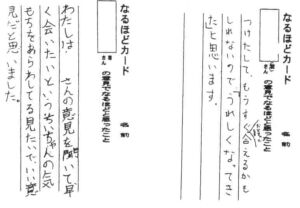 なるほどカード
名前
さんの意見でなるほどと思ったこと
つけたして、もうすぐ会えるかも
しれないので、うれしくなってき
たと思います。
なるほどカード
名前
さんの意見でなるほどと思ったこと
わたしは さんの意見を聞いて早
く会いたいというちいちゃんの気
もちをあらわしてる見たいでいい意
見だと思いました。